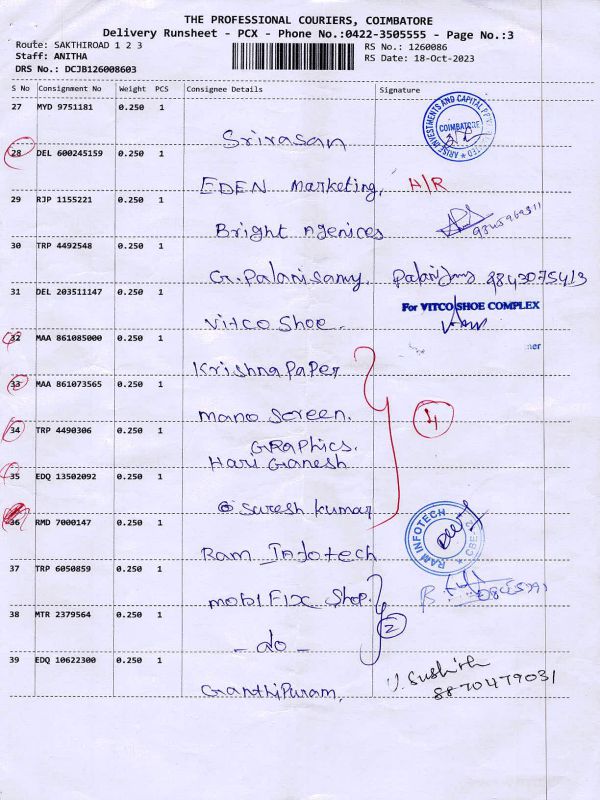 THE PROFESSIONAL COURIERS, COIMBATORE
Delivery Runsheet - PCX - Phone No.:0422-3505555 - Page No.:3
Route: SAKTHIROAD 1 2 3
RS No.: 1260086
Staff: ANITHA
RS Date: 18-Oct-2023
DRS No.: DCJB126008603
S No Consignment No Weight PCS Consignee Details Signature
27 MYD 9751181 0.250 1
Srivasan
COIMBATORE
28 DEL 600245159 0.250 1
EDEN Marketing, A/R
29 RJP 1155221 0.250 1
Bright Agenices
30 TRP 4492548 0.250 1
G. Palanisamy, 9843075413
31 DEL 203511147 0.250 1
For VITCO SHOE COMPLEX
Vitco Shoe.
32 MAA 861085000 0.250 1
Krishna Paper
33 MAA 861073565 0.250 1
Mano Screen.
4
34 TRP 4490306 0.250 1
GRAphics.
Hari Ganesh
35 EDQ 13502092 0.250 1
@ Suresh kumar
36 RMD 7000147 0.250 1
Ram Infotech
RAM INFOTECH
37 TRP 6050859 0.250 1
Mobi Fix Shop.
38 MTR 2379564 0.250 1
2
- do -
39 EDQ 10622300 0.250 1
8870479031
GanthiPuram,